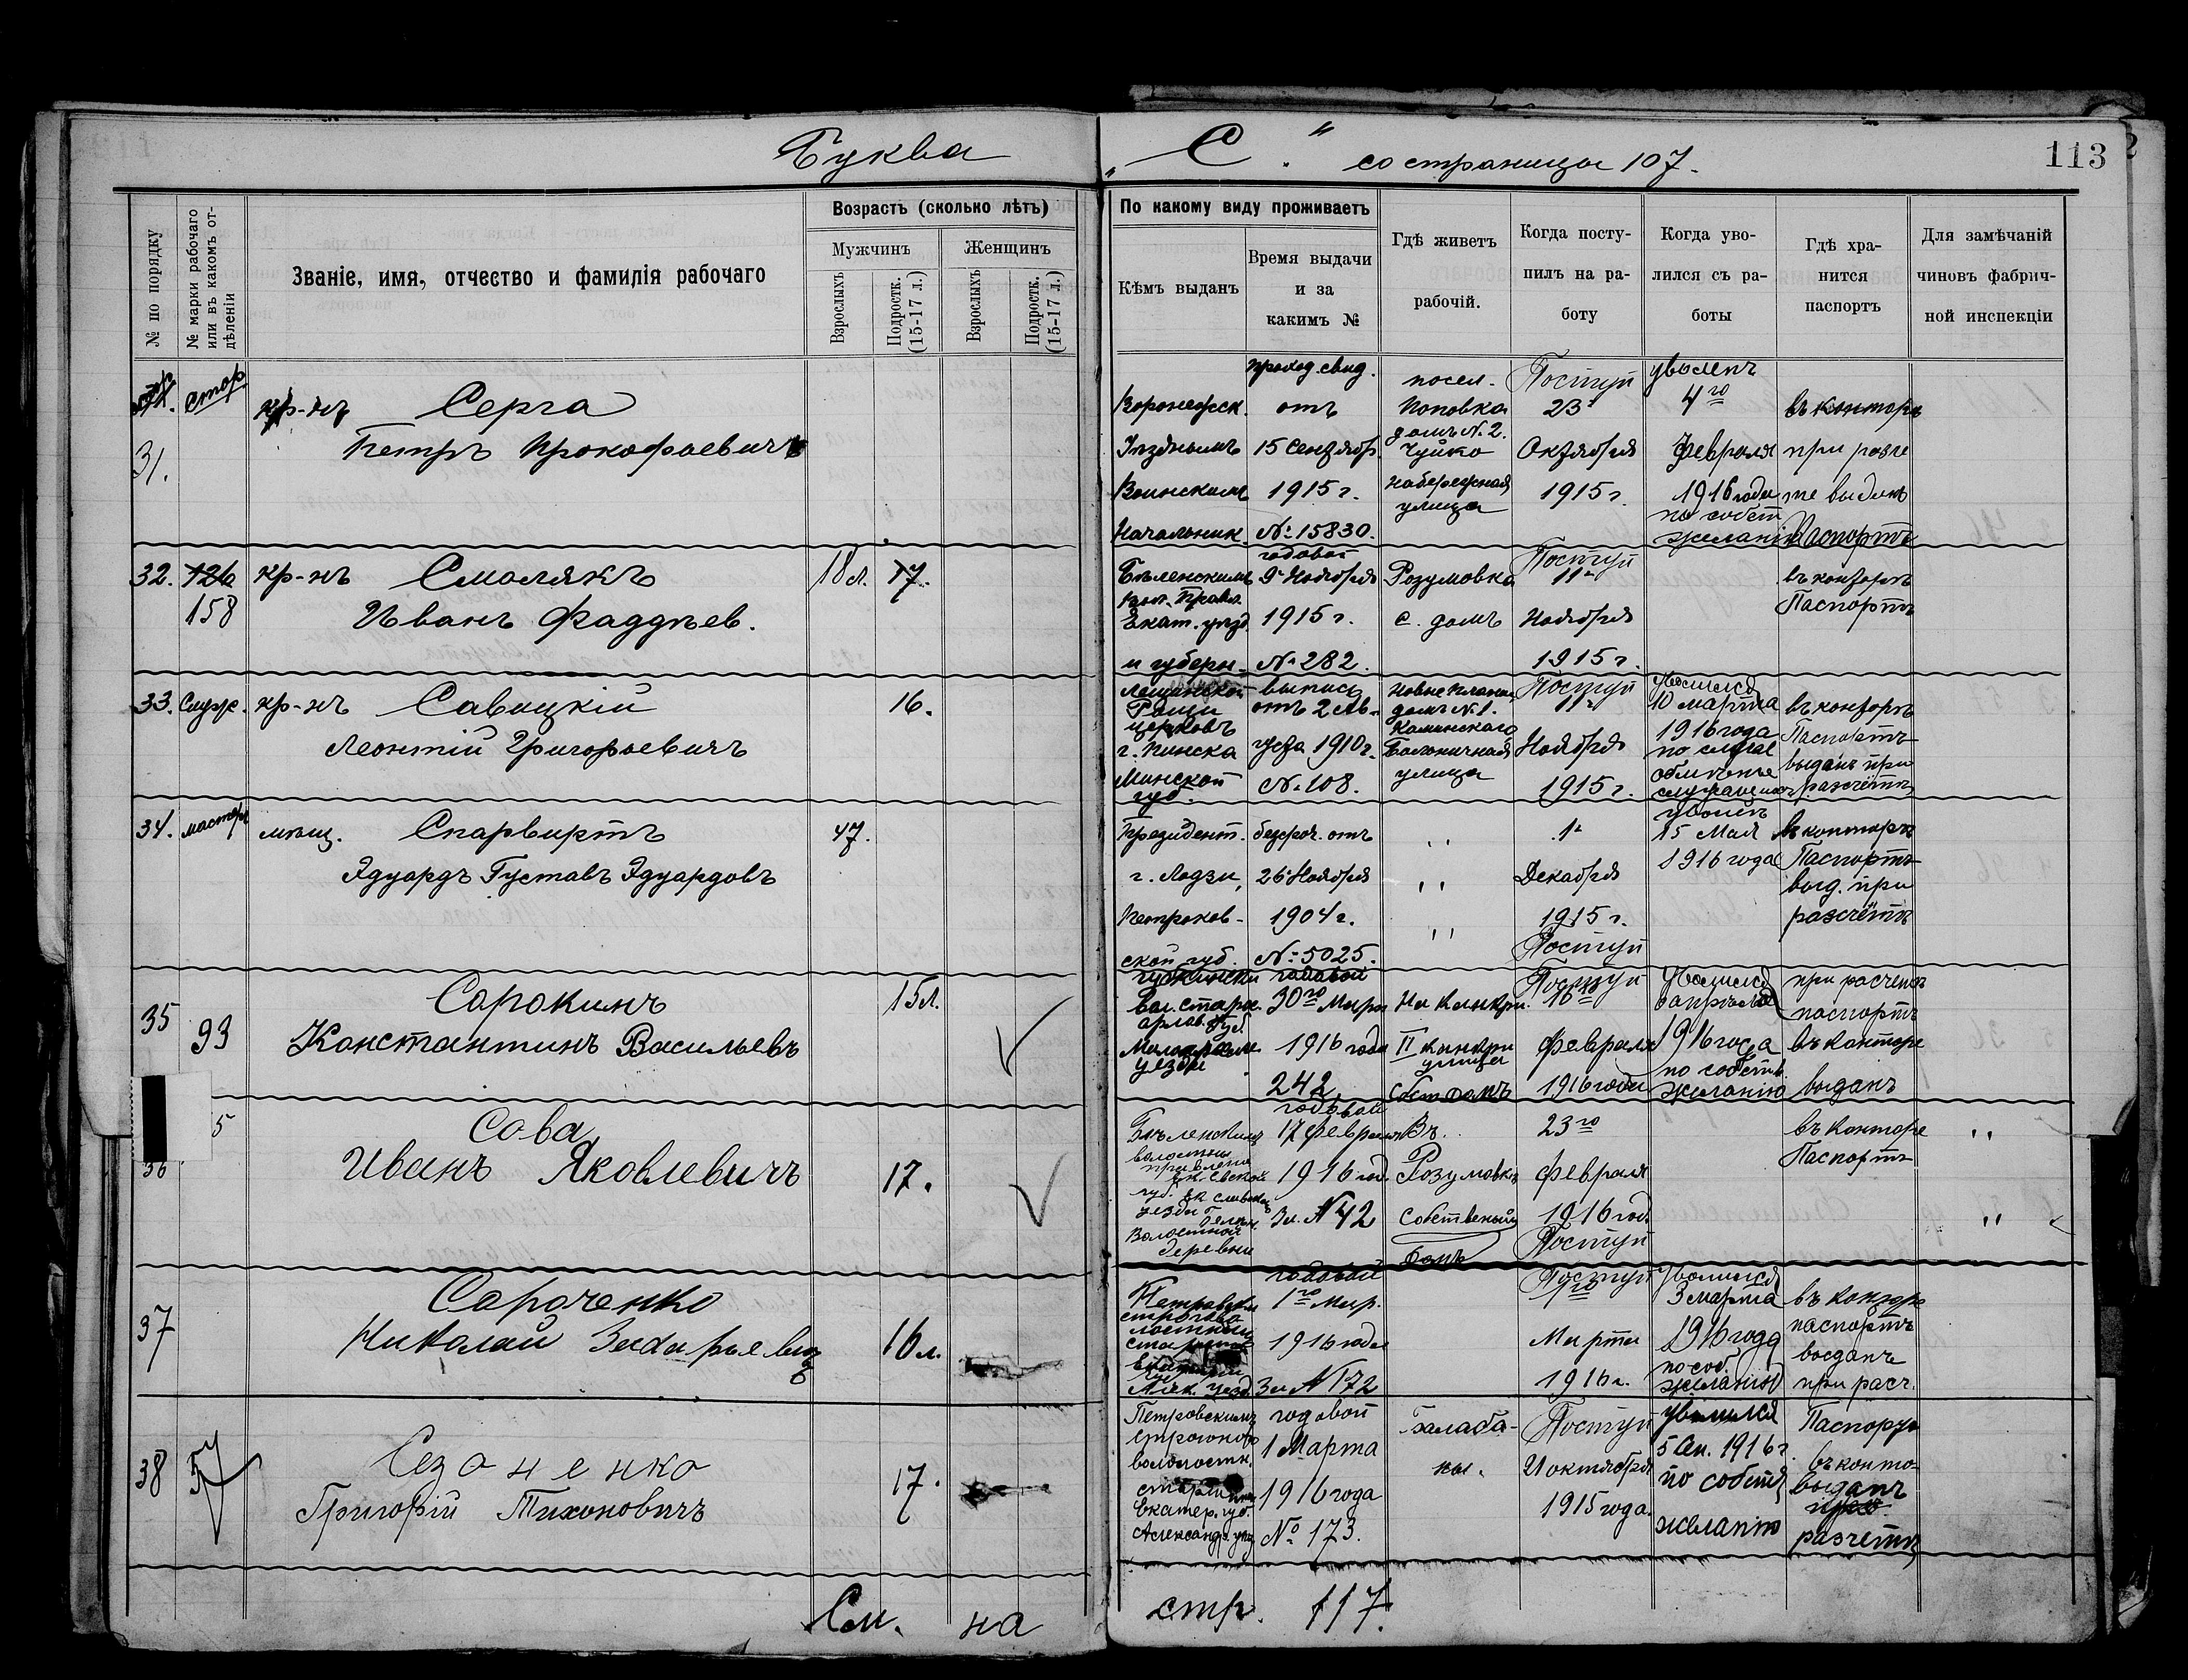 Буква „С." со страницы 107.
113
№ по порядку
№ марки рабочаго или въ какомъ отдѣленіи
Званіе, имя, отчество и фамилія рабочаго
Возрастъ (сколько лѣтъ)
Мужчинъ
Женщинъ
Взрослыхъ
Подростк. (15-17 л.)
Взрослыхъ
Подростк. (15-17 л.)
По какому виду проживаетъ
Кѣмъ выданъ
Время выдачи
и за
какимъ №
Гдѣ живетъ
рабочій.
Когда посту-
пилъ на ра-
боту
Когда уво-
лился съ ра-
боты
Гдѣ хра-
нится
паспортъ
Для замѣчаній
чиновъ фабрич-
ной инспекціи
31.
стор.
кр-нъ Серга
Петръ Прокофьевичъ
Воронежск.
Уѣзднымъ
Воинскимъ
Начальник.
проход. свид.
отъ
15 Сентябр.
1915 г.
№ 15830.
посел.
Поповка
домъ № 2.
Чуйко
набережная
улица
Поступ
23
Октября
1915 г.
уволенъ
4го
Февраля
1916 года
по собст
желанію
въ конторѣ
при разче
те выданъ
Паспортъ
32.
126
158
кр-нъ Смолякъ
Иванъ Фаддѣев.
18 л.
17.
Бѣленскимъ
Вол. Правл.
Екат. уѣзд.
и губерн.
годовой
9 Ноября
1915 г.
№ 282.
Розумовка
с. домъ
Поступ
11
Ноября
1915 г.
въ конторѣ
Паспортъ
33.
Служ.
кр-нъ Савицкій
Леонтій Григорьевичъ
16.
Лещинской
Рощи
церковь
г. Пинска
Минской
губ.
выпись
отъ 2 Ав-
густа 1910 г.
№ 108.
новые планы
домъ № 1.
Каминскаго
улица
Поступ
11
Ноября
1915 г.
10 марта
1916 года
по
въ конторѣ
Паспортъ
выданъ при
разчётѣ
34.
мастеръ
мѣщ. Спарвиртъ
Эдуардъ Густавъ Эдуардовъ
47.
Президент.
г. Лодзи,
Петроков-
ской губ.
безсроч. отъ
26 Ноября
1904 г.
№ 5025.
" "
" "
" "
1
Декабря
1915 г.
Поступ
уволен
15 Мая
1916 года
въ конторѣ
Паспортъ
выд. при
разчётѣ
35
93
Сорокинъ
Константинъ Васильевъ
15 л.
вол. старш.
орлов. губ.
уезда
годовой
30го Мар
1916 года
242
На Канкри.
II канкри
улица
Собст домъ
Поступ
16го
Февраля
1916 года
Уволился
1916 года
по собств.
желанію
при расчетѣ
паспортъ
въ конторе
выданъ
36
5
Сова
Иванъ Яковлевичъ
17.
Бѣленскимъ
волостны
правлени
губ.
уезда
Волостной
деревни
годовой
17 февраля
1916 год
За № 42
Въ
Розумовкѣ
Собственый
домъ
23го
февраля
1916 год
Поступ
въ конторе
Паспортъ
"
"
37
Сороченко
Николай Захарьевичъ
16 л.
Алек. уезд.
годовой
1го Мар.
1916 года
За № 172
Поступ
1го
Марта
1916 г.
Уволился
3 марта
1916 года
по соб.
желанію
въ конторѣ
паспортъ
выданъ
при расч.
38
57
Сезоненко
Григорій Тихоновичъ
17.
Петровскимъ
волостн.
Екатер. губ.
Александр. уѣз
годовой
1 Марта
1916 года
№ 173.
Балаба-
ны.
Поступ
21 октября
1915 года.
уволился
5 Ап. 1916 г.
по собств
желанію
Паспортъ
въ конто-
выданъ
при
разчётѣ
См. на стр. 117.